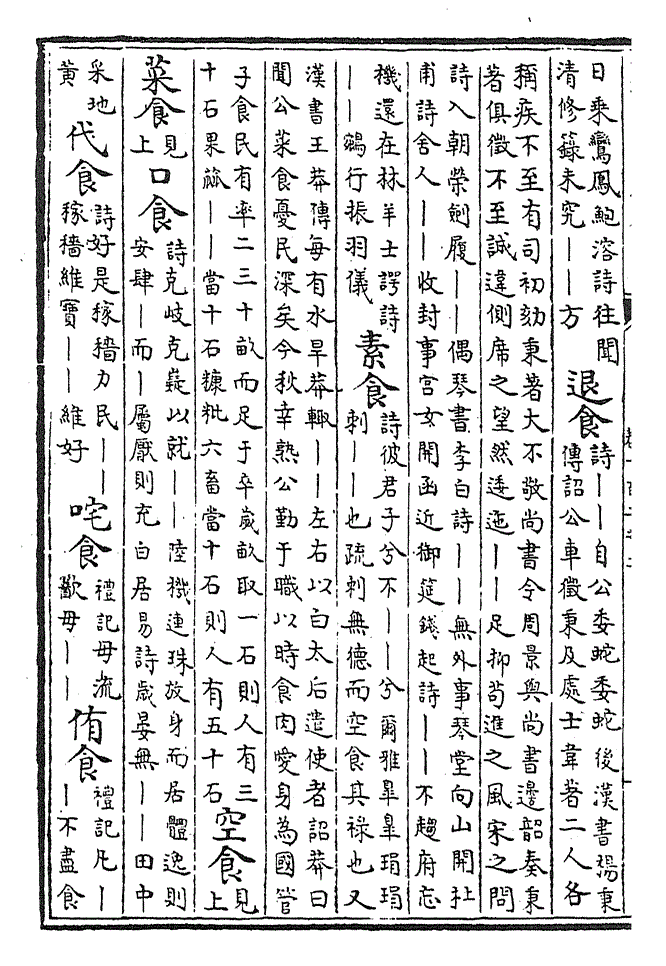 日乘鸞鳳鮑溶詩往聞
清修籙未究——方
退食
詩——自公委蛇委蛇後漢書楊秉
傳詔公車徵秉及處士韋著二人各
稱疾不至有司初劾秉著大不敬尚書令周景與尚書邊韶奏秉
著俱徵不至誠違側席之望然逶迤——足抑苟進之風宋之問
詩入朝榮劍履——偶琴書李白詩——無外事琴堂向山開杜
甫詩舍人——收封事宮女開函近御筵錢起詩——不趨府忘
機還在林羊士諤詩
——鵷行振羽儀
素食
詩彼君子兮不——兮爾雅臯臯琄琄
刺——也疏刺無德而空食其祿也又
漢書王莽傳每有水旱莽輒——左右以白太后遣使者詔莽曰
聞公菜食憂民深矣今秋幸熟公勤于職以時食肉愛身為國管
子食民有率二三十畝而足于卒歲畝取一石則人有三
十石果蓏——當十石糠粃六畜當十石則人有五十石
空食
見
上
菜食
見
上
口食
詩克岐克嶷以就——陸機連珠放身而居體逸則
安肆—而—屬厭則充白居易詩歲晏無——田中
采地
黃
代食
詩好是稼穡力民——
稼穡維寶——維好
咤食
禮記毋流
歠毋——
侑食
禮記凡—
—不盡食